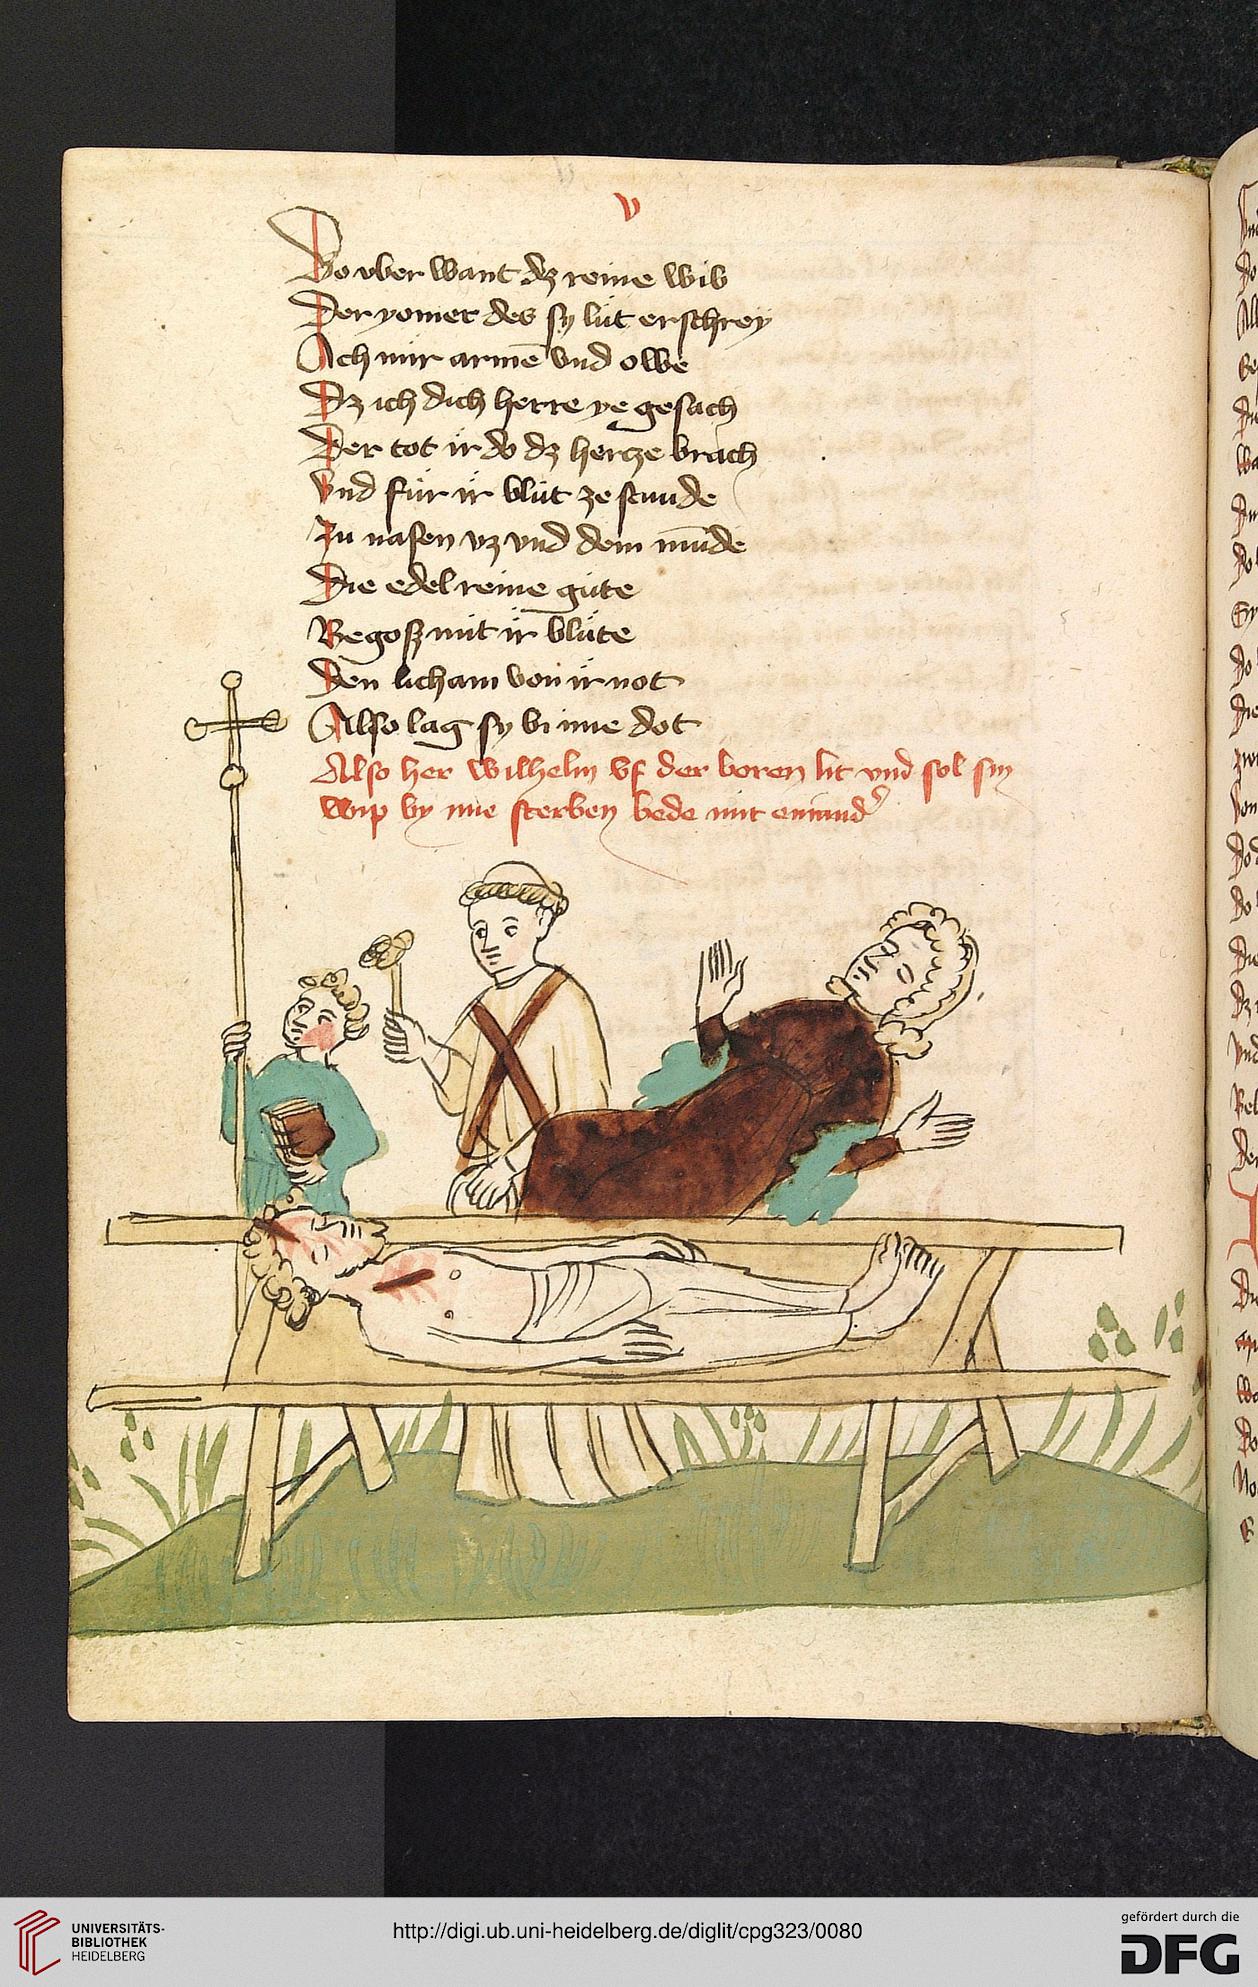 v
Do vber want dz reine wib
Der yomer des sy lut erschrey
Ach mir armē vnd owe
Dz ich dich herre ye gesach
Der tot ir do dz hertze brach
Vnd fúr ir blůt ze stunde
Zu nasen vz vnd dem mūde
Die edel reine gůte
Begoß mit ir blůte
Den licham von ir not
Also lag sy bi ime dot
Also her wilhelm vf der boren lit vnd sol sin
wip by ime sterben bede mit einand'
UNIVERSITÄTS-
BIBLIOTHEK
HEIDELBERG
http://digi.ub.uni-heidelberg.de/diglit/cpg323/0080
gefördert durch die
DFG